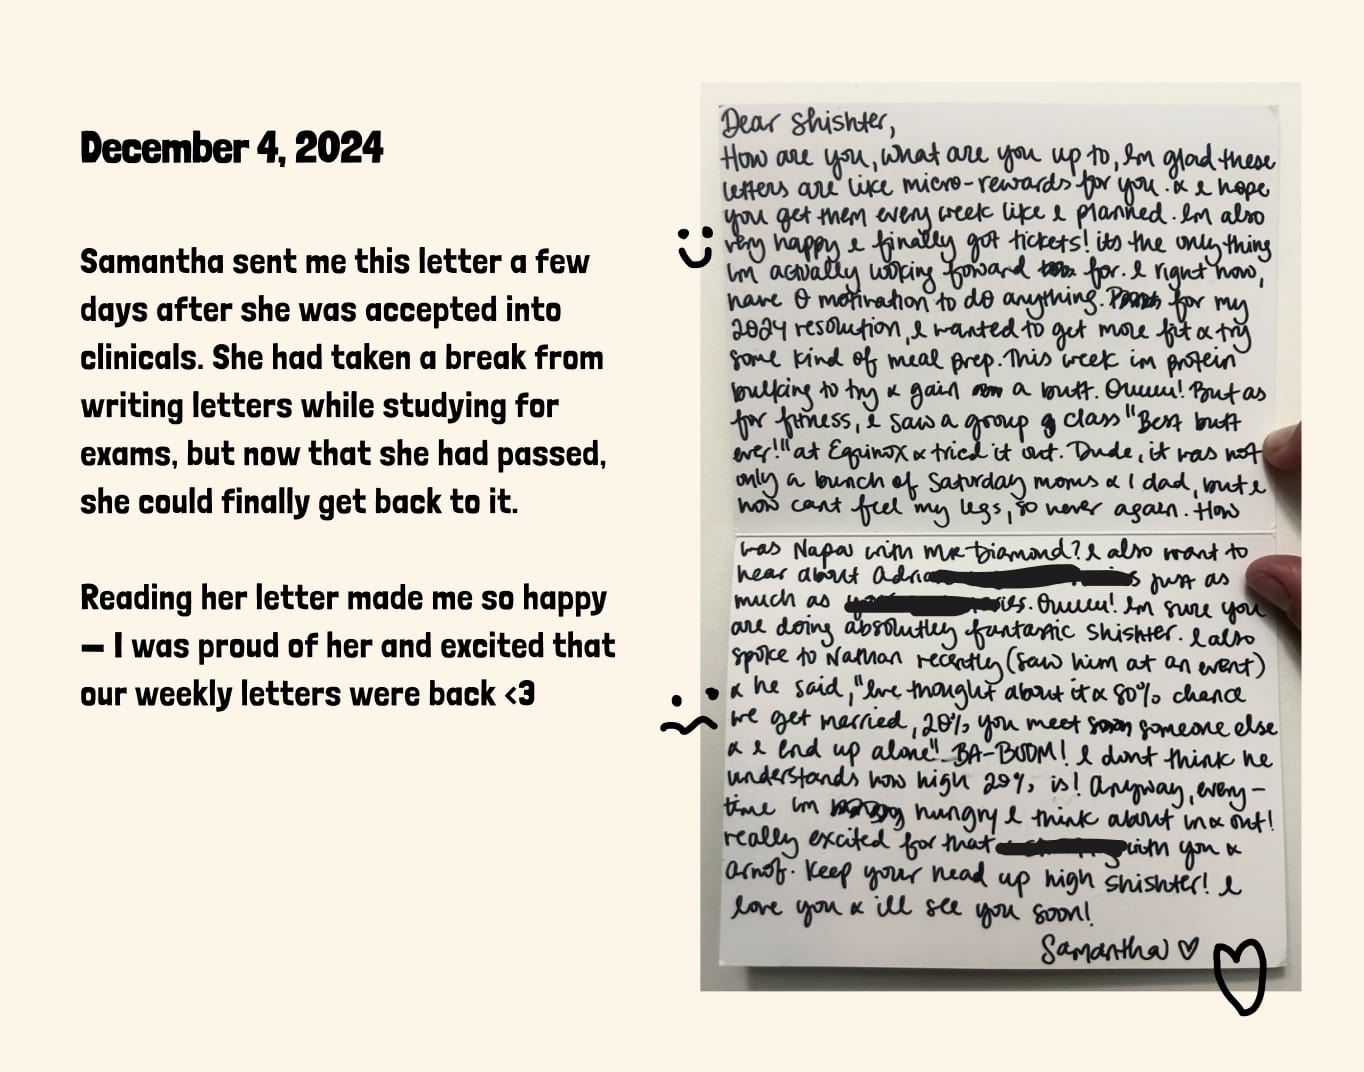 December 4, 2024
Samantha sent me this letter a few
days after she was accepted into
clinicals. She had taken a break from
writing letters while studying for
exams, but now that she had passed,
she could finally get back to it.
Reading her letter made me so happy
— I was proud of her and excited that
our weekly letters were back <3
Dear Shishter,
How are you, what are you up to, Im glad these
letters are like micro-rewards for you. & I hope
you get them every week like I planned. Im also
very happy I finally got tickets! its the only thing
Im actually looking foward for. I right now,
have 0 motivation to do anything. for my
2024 resolution, I wanted to get more fit & try
some kind of meal prep. This week im protein
bulking to try & gain a butt. Ouuuu! But as
for fitness, I saw a group class "Best butt
ever!!" at Equinox & tried it out. Dude, it was not
only a bunch of Saturday moms & 1 dad, but I
now cant feel my legs, so never again. How
was Napa with Mr Diamond? I also want to
hear about just as
much as Ouuuu! Im sure you
are doing absolutley fantastic Shishter. I also
spoke to Nathan recently (saw him at an event)
& he said, "Ive thought about it & 80% chance
we get married, 20% you meet someone else
& I end up alone". BA-BOOM! I dont think he
understands how high 20% is! Anyway, every-
time im hungry I think about in & out!
really excited for that with you &
Keep your head up high shishter! I
love you & ill see you soon!
Samantha ♡